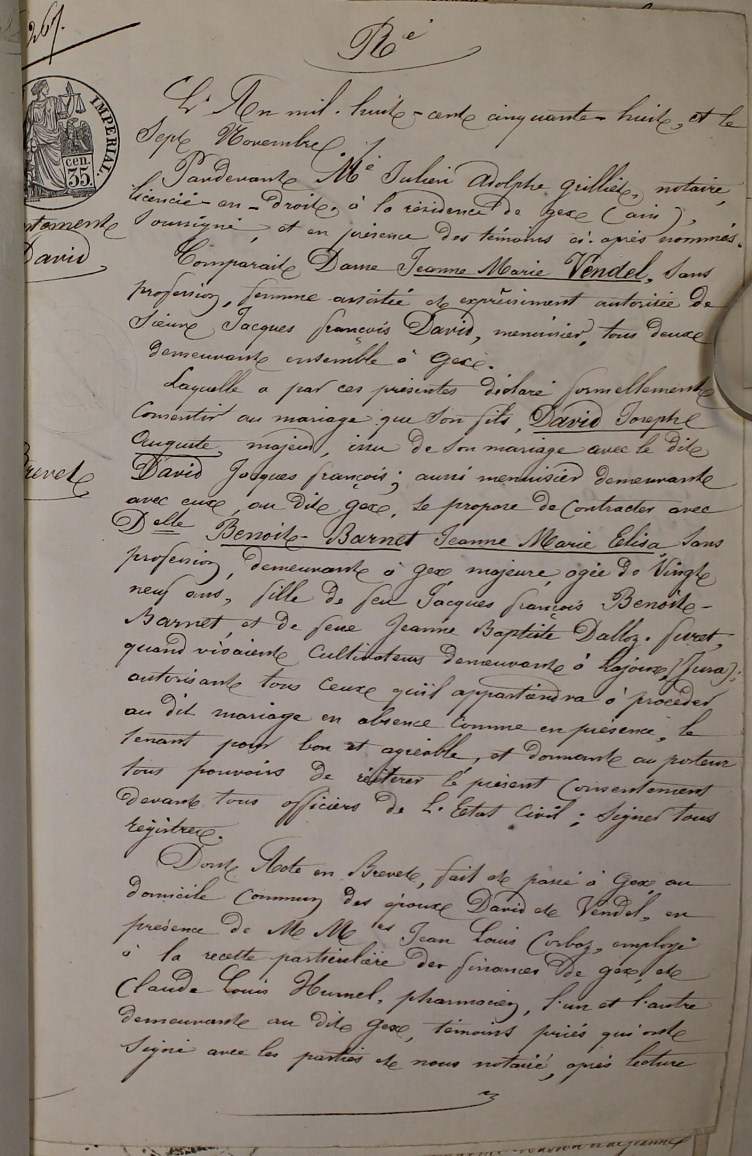 267.
Ré
IMPERIAL.
cen.
35
L'An mil-huit-cent cinquante-huit, et le
Sept Novembre,
Pardevant Me Julien Adolphe Grilliet, notaire,
licencié-en-droit, à la résidence de Gex (ain),
soussigné, et en présence des témoins ci-après nommés.
David
Comparait Dame Jeanne Marie Vendel, sans
profession, femme assistée et expressément autorisée de
Sieur Jacques françois David, menuisier, tous deux
demeurant ensemble à Gex.
Laquelle a par ces présentes déclaré formellement
Consentir au mariage que son fils, David Joseph
Auguste, majeur, issu de son mariage avec le dit
Brevet
David Jacques françois; aussi menuisier demeurant
avec eux, au dit Gex, se propose de contracter avec
Delle Benoit-Barnet Jeanne Marie Elisa, sans
profession, demeurant à Gex, majeure, agée de Vingt
neuf ans, fille de feu Jacques françois Benoit-
Barnet, et de feue Jeanne Baptiste Dalloz-furet,
quand vivaient Cultivateurs demeurant à Lajoux, (Jura);
autorisant tous ceux qu'il appartiendra à procéder
au dit mariage en absence comme en présence, le
tenant pour bon et agréable, et donnant au porteur
tous pouvoirs de réitérer le présent Consentement
devant tous officiers de L'Etat Civil; signer tous
registres.
Dont Acte en Brevet, fait et passé à Gex, au
domicile commun des époux David et Vendel, en
présence de MM rs Jean Louis Corboz, employé
à la recette particulière des finances de Gex, et
Claude Louis Humel, pharmacien, l'un et l'autre
demeurant au dit Gex, témoins priés qui ont
Signé avec les parties et nous notaire, après lecture